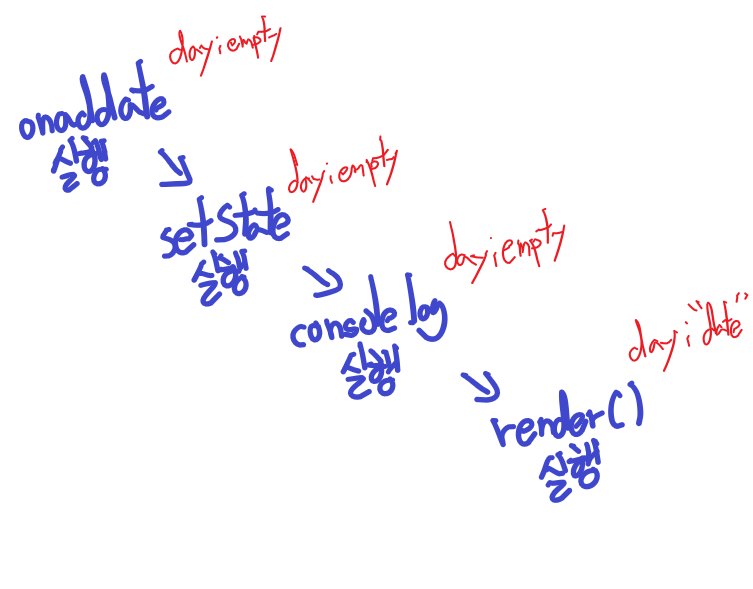 day:empty
onaddate
실행
day:empty
setState
실행
day:empty
console log
실행
day:"date"
render()
실행